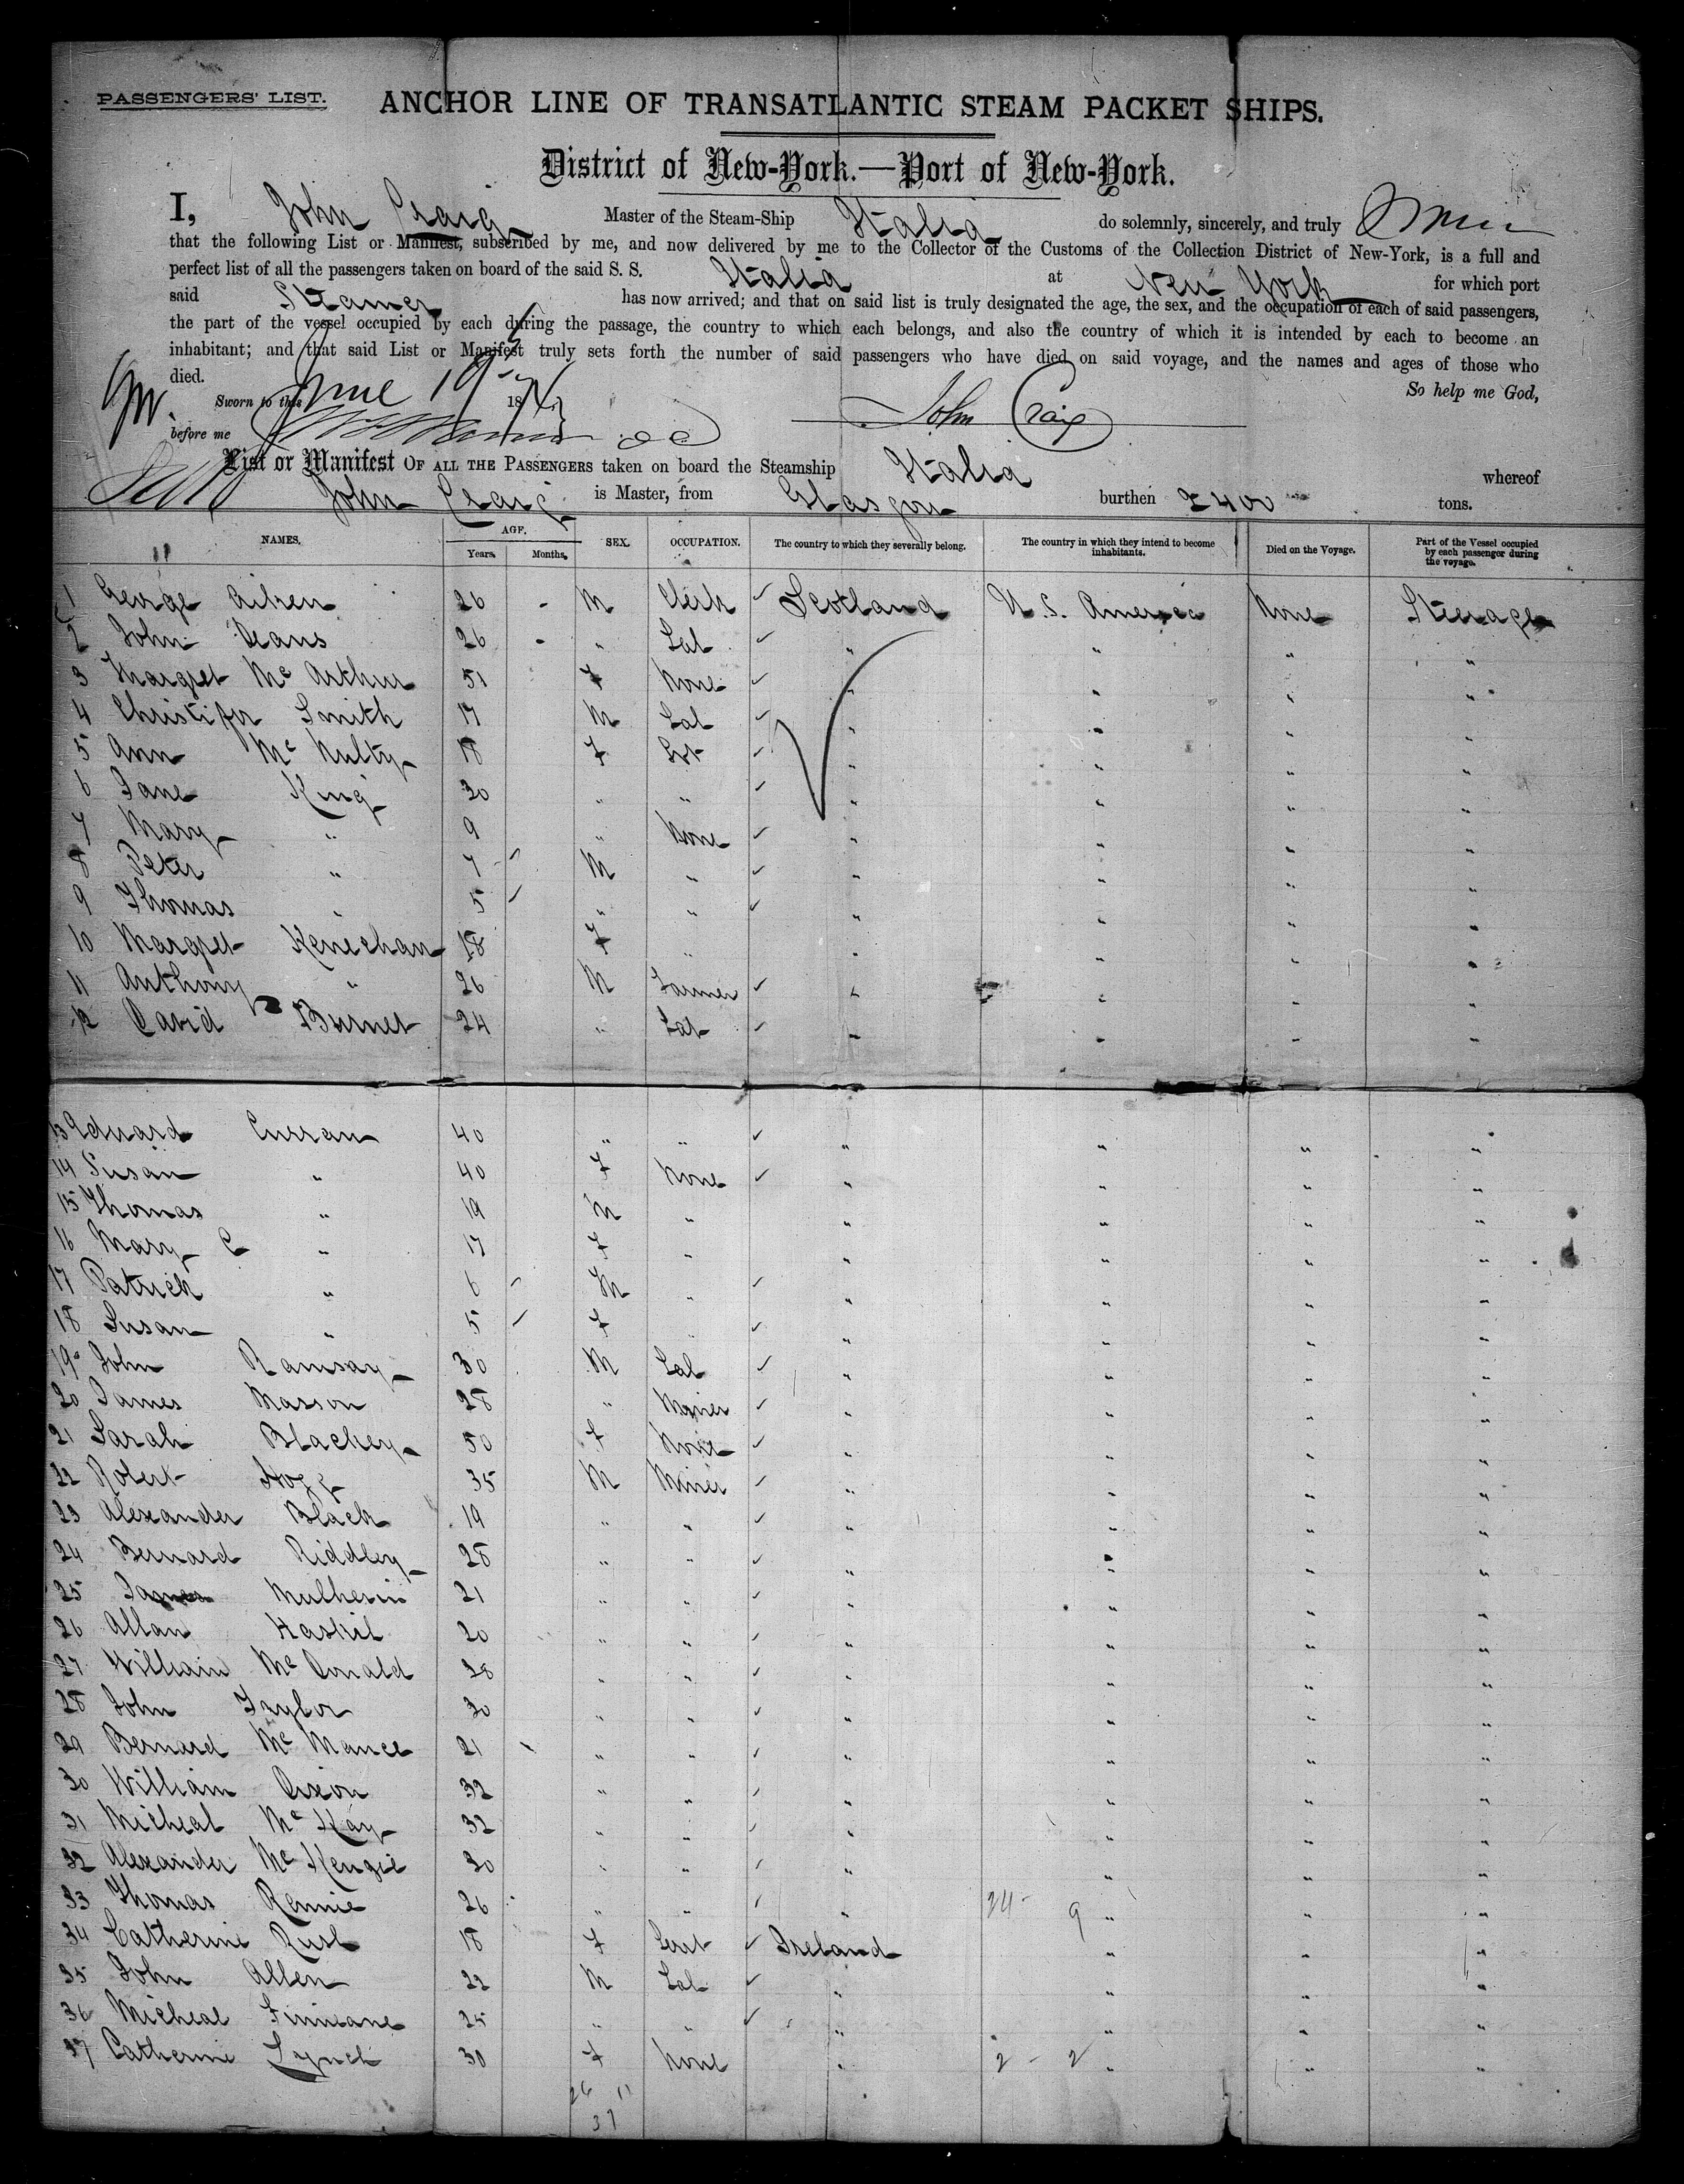 PASSENGERS' LIST.
ANCHOR LINE OF TRANSATLANTIC STEAM PACKET SHIPS.
District of New-York.—Port of New-York.
I, John Craig Master of the Steam-Ship Italia do solemnly, sincerely, and truly
that the following List or Manifest, subscribed by me, and now delivered by me to the Collector of the Customs of the Collection District of New-York, is a full and
perfect list of all the passengers taken on board of the said S. S. Italia at New York for which port
said Steamer has now arrived; and that on said list is truly designated the age, the sex, and the occupation of each of said passengers,
the part of the vessel occupied by each during the passage, the country to which each belongs, and also the country of which it is intended by each to become an
inhabitant; and that said List or Manifest truly sets forth the number of said passengers who have died on said voyage, and the names and ages of those who
died. So help me God,
Sworn to this June 187 John Craig
before me
List or Manifest OF ALL THE PASSENGERS taken on board the Steamship Italia whereof
John Craig is Master, from Glasgow burthen 2400 tons.
NAMES. AGE. Years. Months. SEX. OCCUPATION. The country to which they severally belong. The country in which they intend to become inhabitants. Died on the Voyage. Part of the Vessel occupied by each passenger during the voyage.
1 George Aitken 26 - M Clerk ✓ Scotland U.S. America None Steerage
2 John Deans 26 - " Lab ✓ " " " "
3 Margret Mc Arthur 51 F None ✓ " " " "
4 Christifor Smith 17 M Lab ✓ " " " "
5 Ann Mc Nulty 18 F ✓ " " " "
6 Jane King 30 " " ✓ " " " "
7 Mary " 9 " None ✓ " " " "
8 Peter " 7 M " ✓ " " " "
9 Thomas " 5 " " ✓ " " " "
10 Margret Kenechan 18 F " " " " "
11 Anthony " 26 M Farmer ✓ " " " "
12 David Burnet 24 " Lab ✓ " " " "
13 Edward Curran 40 " " ✓ " " " "
14 Susan " 40 F None ✓ " " " "
15 Thomas " 19 M " " " " "
16 Mary C " 17 F " " " " "
17 Patrick " 6 M " ✓ " " " "
18 Susan " 5 F " ✓ " " " "
19 John Ramsay 30 M Lab ✓ " " " "
20 James Masson 28 " Miner ✓ " " " "
21 Sarah Blackey 50 F None ✓ " " " "
22 Robert Hogg 35 M Miner ✓ " " " "
23 Alexander Black 19 " " ✓ " " " "
24 Bernard Riddley 28 " " ✓ " " " "
25 James Mulherin 21 " " ✓ " " " "
26 Allan 20 " " ✓ " " " "
27 William Mc Donald 28 " " ✓ " " " "
28 John Taylor 30 " " ✓ " " " "
29 Bernard Mc Mance 21 " " ✓ " " " "
30 William Dixon 32 " " ✓ " " " "
31 Micheal Mc Kay 32 " " ✓ " " " "
32 Alexander Mc Kenzie 30 " " ✓ " " " "
33 Thomas Rennie 26 " " ✓ " 24 - 9 " " "
34 Catherine 18 F Servt ✓ Ireland " " "
35 John Allen 22 M Lab ✓ " " " "
36 Micheal Finneane 25 " " ✓ " " " "
37 Catherine Lynch 30 F None " 2 - 2 " " "
26 11
37